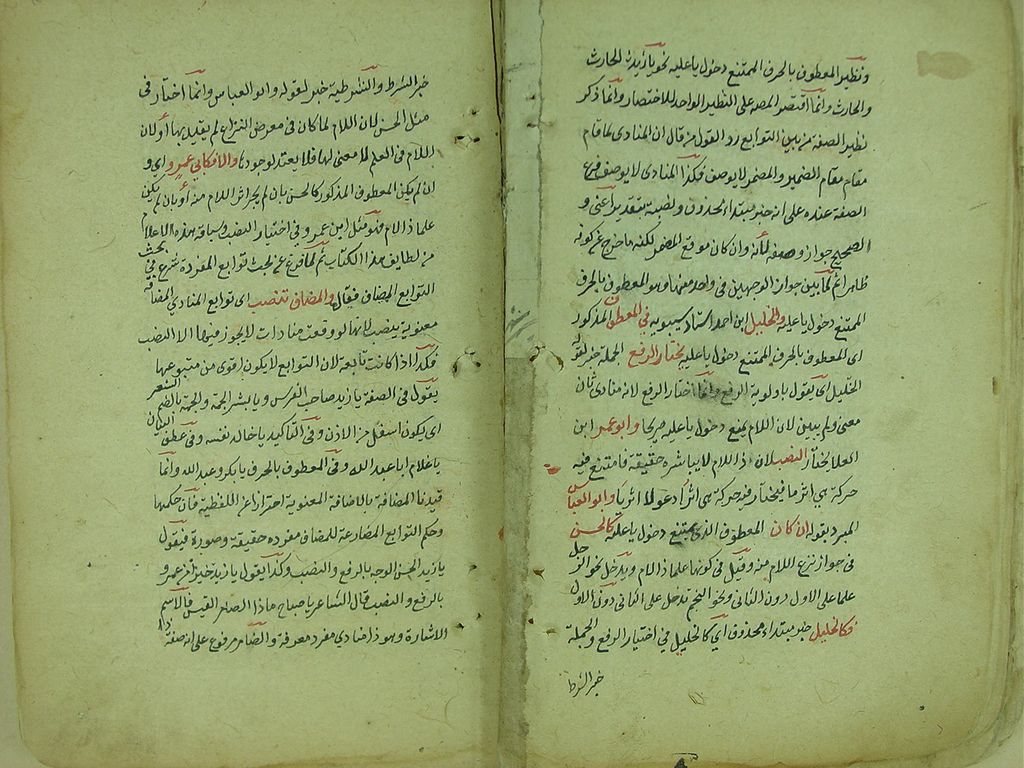 ونظير المعطوف بالحرف الممتنع دخول يا عليه نحو يا زيد الحارث
والحارث وانما اقتصر المصه على النظير الواحد للاختصار وانما ذكر
نظير الصفه من بين التوابع رد القول من قال ان المنادى لما قام
مقام مقام الضمير والمضمر لا يوصف فكذا المنادى لا يوصف فرفع
الصفة عنده على انه خبر مبتداء محذوف ونصبه بتقدير اعنى و
الصحيح جواز وصفه لانه وان كان موقع المضمر لكنه ما خرج عن كونه
ظاهرا ثم لما بين جواز الوجهين في واحد منهما وهو المعطوف بالحرف
الممتنع دخول يا عليه والخليل ابن احمد استاد سيبويه في المعطوف المذكور
اى المعطوف بالحرف الممتنع دخول يا عليه يختار الرفع الجملة خبر لقوله
الخليل اى يقول باولوية الرفع وانما اختار الرفع لانه منادى ثان
معنى ولم يبين لان اللام يمنع دخول يا عليه صريحا وابو عمر ابن
العلا يختار النصب لان ذا اللام لا يباشره حقيقة فامتنع فيه
حركة هي اثر ما فيختار فيه حركة هي اثر ادعو لا اثر يا وابو العباس
المبرد يقول ان كان المعطوف الذى يمتنع دخول يا عليه كالحسن
في جواز نزع اللام منه وقيل في كونها علما ذا لام ويدخل نحو الرجل
علما على الاول دون الثانى ونحو النجم تدخل على الثانى دون الاول
فكالخليل خبر مبتداء محذوف اى كالخليل في اختيار الرفع والجملة
خبر الشرط
خبر الشرط والشرطية خبر لقوله وابو العباس وانما اختار في
مثل الحسن لان اللام لما كان في معرض النزاع لم يعتد بها او لان
اللام في العلم لا معنى لها فلا يعتد لوجودها والا فكابي عمرو اى و
ان لم يكن المعطوف المذكور كالحسن بان لم يجز اثر اللام منه او بان لم يكن
علما ذا لام فهو مثل ابن عمرو في اختيار النصب وسياقة بهذه الاعلام
من لطايف هذا الكتاب ثم لما فرغ عن بحث توابع المفردة شرع في بحث
التوابع المضاف فقال والمضاف تنصب اى توابع المنادي المضافة
معنوية ينصب لانها لو وقعت منادات لا يجوز فيها الا النصب
فكذا اذا كانت تابعة لان التوابع لا يكون اقوى من متبوعها
يقول في الصفة يا زيد صاحب الفرس ويا بشر الجمه والجمة بالضم الشعر
اى يكون اسفل من الاذن وفي التاكيد يا خالد نفسه وفي عطف البيان
يا غلام ابا عبد الله وفي المعطوف بالحرف يا بكر وعبد الله وانما
قيدنا المضافة بالاضافة المعنوية احترازا عن اللفظية فان حكمها
وحكم التوابع المضارعة للمضاف مفرده حقيقة وصورة فيقول
يا زيد الحسن الوجه بالرفع والنصب وكذا يقول يا زيد خيرا من عمرو
بالرفع والنصب قال الشاعر يا صاح ماذا الضامر العيس فالاسم
الاشارة وهو ذا منادي مفرد معرفة والضامر مرفوع على انه صفة ذا